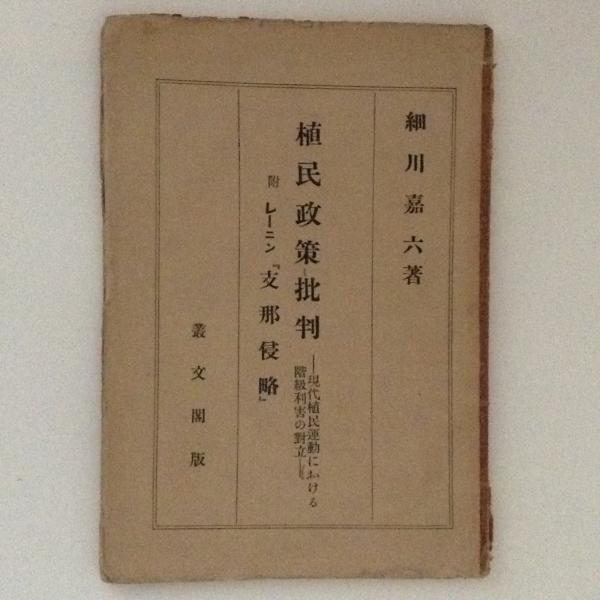 細川嘉六著
植民政策批判
――現代植民運動における
階級利害の對立――
附 レーニン『支那侵略』
叢文閣版